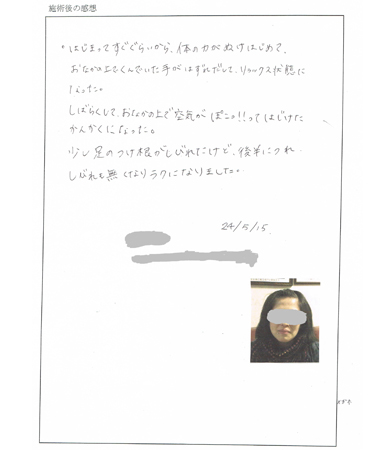 施術後の感想
。はじまってすぐぐらいから、体の力がぬけはじめて、
おなかの上でくんでいた手がはずれだして、リラックス状態に
なった。
しばらくして、おなかの上で空気がぽこっ!!ってはじけた
かんかくになった。
少し足のつけ根がしびれたけど、後半につれ
しびれも無くなりラクになりました。
24/5/15.